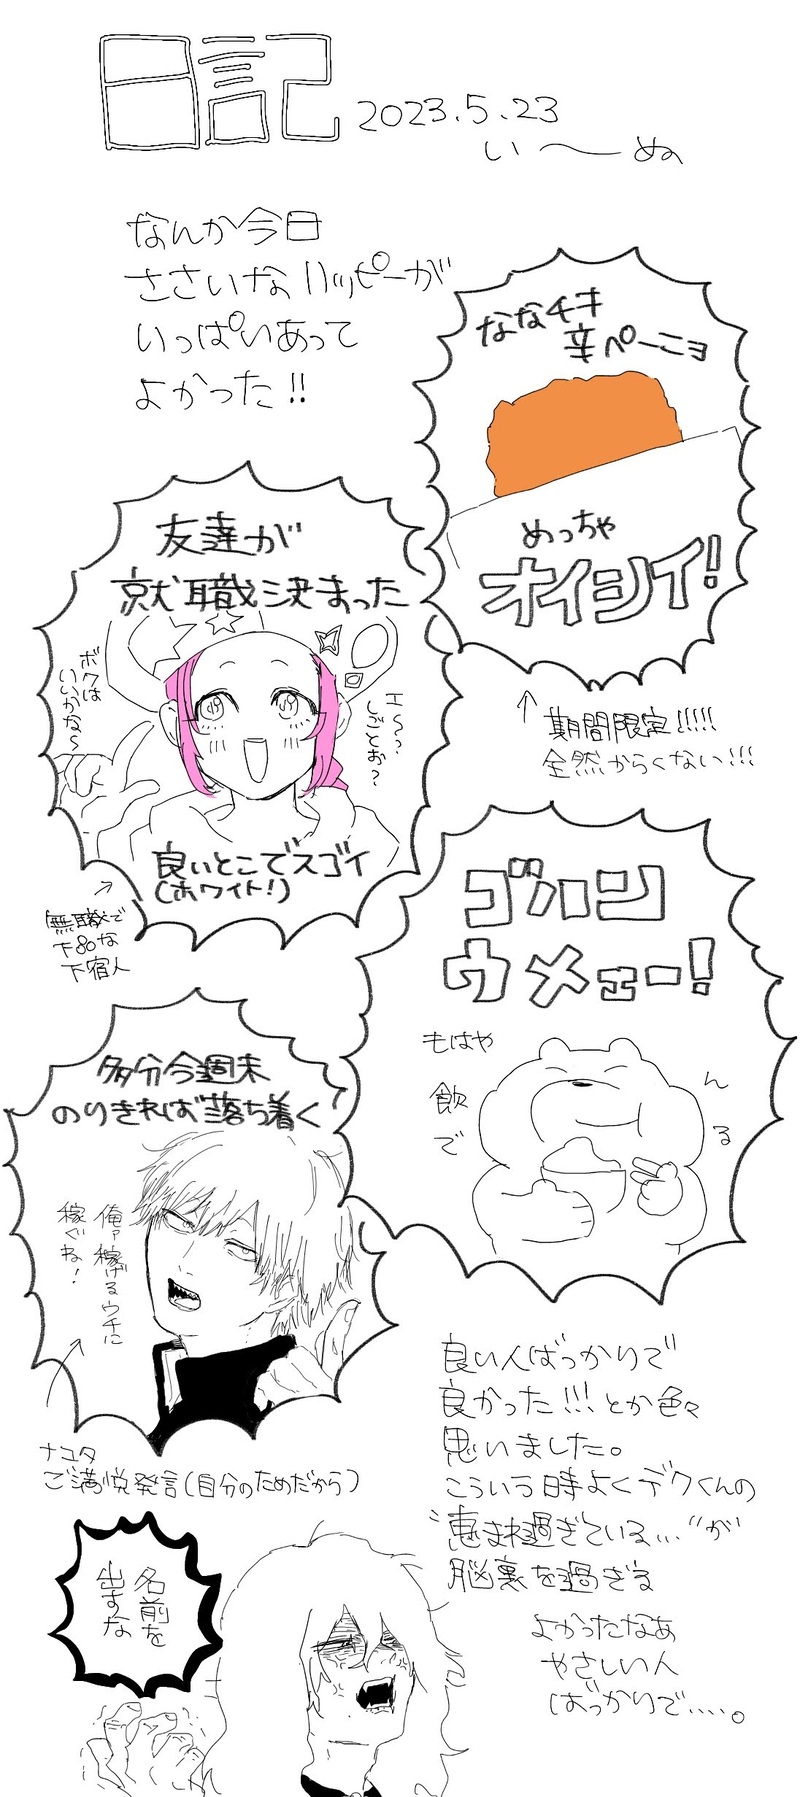 日記
2023.5.23
い〜ぬ
なんか今日
ささいなハッピーが
いっぱいあって
よかった!!
ななチキ
辛ペーニョ
めっちゃ
オイシイ!
↑
期間限定!!!!!
全然からくない!!!
友達が
就職決まった
ボクは
いいかな〜
エ〜っ
しごとぉ?
良いとこでスゴイ
(ホワイト!)
無職で
下80な
下宿人
ゴハン
ウメェー!
もはや
飲
で
ん
る
多分今週末
のりきれば落ち着く
俺ァ稼げるウチに
稼ぐね!
ナユタ
ご満悦発言(自分のためだから)
良い人ばっかりで
良かった!!!とか色々
思いました。
こういう時よくデクくんの
“恵まれ過ぎている...”が
脳裏を過ぎる
よかったなあ
やさしい人
ばっかりで....。
名前を
出すな